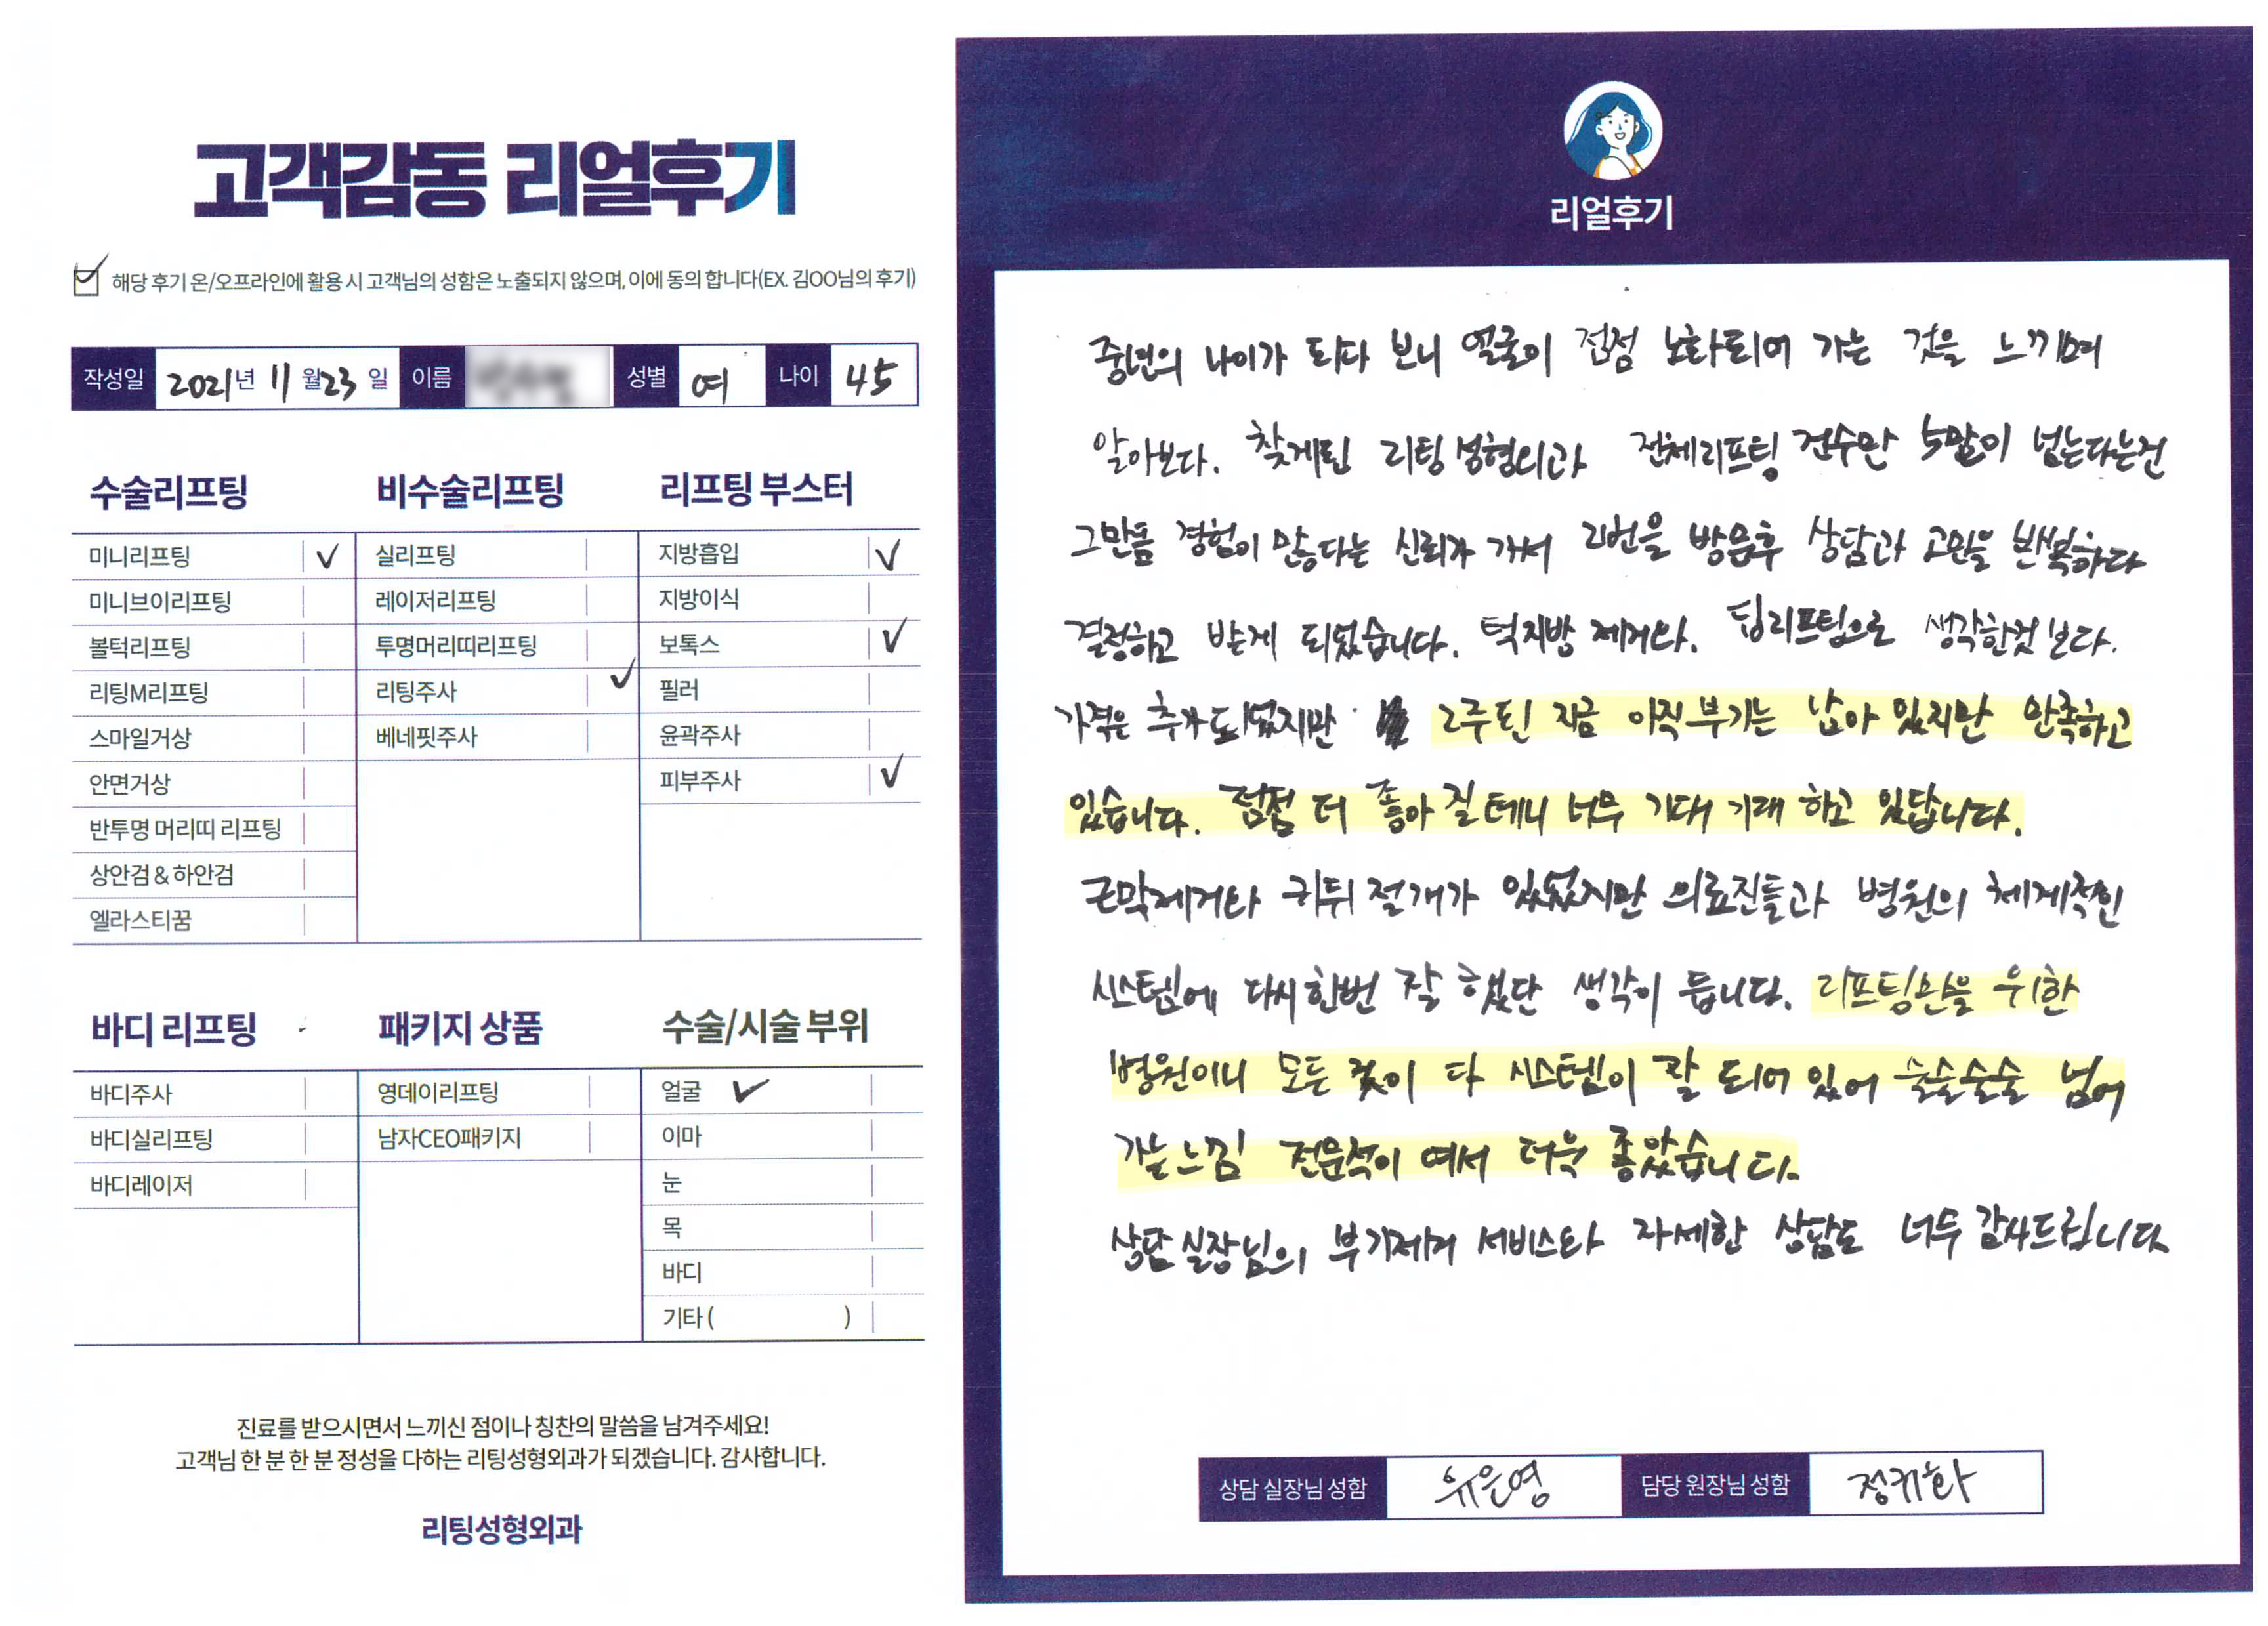 고객감동 리얼후기
해당 후기 온/오프라인에 활용 시 고객님의 성함은 노출되지 않으며, 이에 동의 합니다(EX. 김OO님의 후기)
작성일 2021년 11월 23일 이름 성별 여 나이 45
수술리프팅
미니리프팅
미니브이리프팅
볼턱리프팅
리팅M리프팅
스마일거상
안면거상
반투명 머리띠 리프팅
상안검 & 하안검
엘라스티꿈
비수술리프팅
실리프팅
레이저리프팅
투명머리띠리프팅
리팅주사
베네핏주사
리프팅 부스터
지방흡입
지방이식
보톡스
필러
윤곽주사
피부주사
바디 리프팅
바디주사
바디실리프팅
바디레이저
패키지 상품
영데이리프팅
남자CEO패키지
수술/시술 부위
얼굴
이마
눈
목
바디
기타 ( )
진료를 받으시면서 느끼신 점이나 칭찬의 말씀을 남겨주세요!
고객님 한 분 한 분 정성을 다하는 리팅성형외과가 되겠습니다. 감사합니다.
리팅성형외과
리얼후기
중년의 나이가 되다 보니 얼굴이 점점 노화되어 가는 것을 느끼며
알아보다. 찾게된 리팅성형외과 전체리프팅 건수만 5만이 넘는다는건
그만큼 경험이 많다는 신뢰가 가서 2번을 방문후 상담과 고민을 반복하다
결정하고 받게 되었습니다. 턱지방 제거와. 팁리프팅으로 생각한것 보다.
가격은 추가되었지만 2주된 지금 아직 부기는 남아 있지만 만족하고
있습니다. 점점 더 좋아 질테니 너무 기대 기대 하고 있답니다.
근막제거와 귀뒤 절개가 있었지만 의료진들과 병원의 체계적인
시스템에 다시한번 잘 했단 생각이 듭니다. 리프팅만을 위한
병원이니 모든 것이 다 시스템이 잘 되어 있어 술술술술 넘어
가는느낌 전문적이 여서 더욱 좋았습니다.
상담실장님의 부기제거 서비스와 자세한 상담도 너무 감사드립니다
상담 실장님 성함 유은영 담당 원장님 성함 정귀화